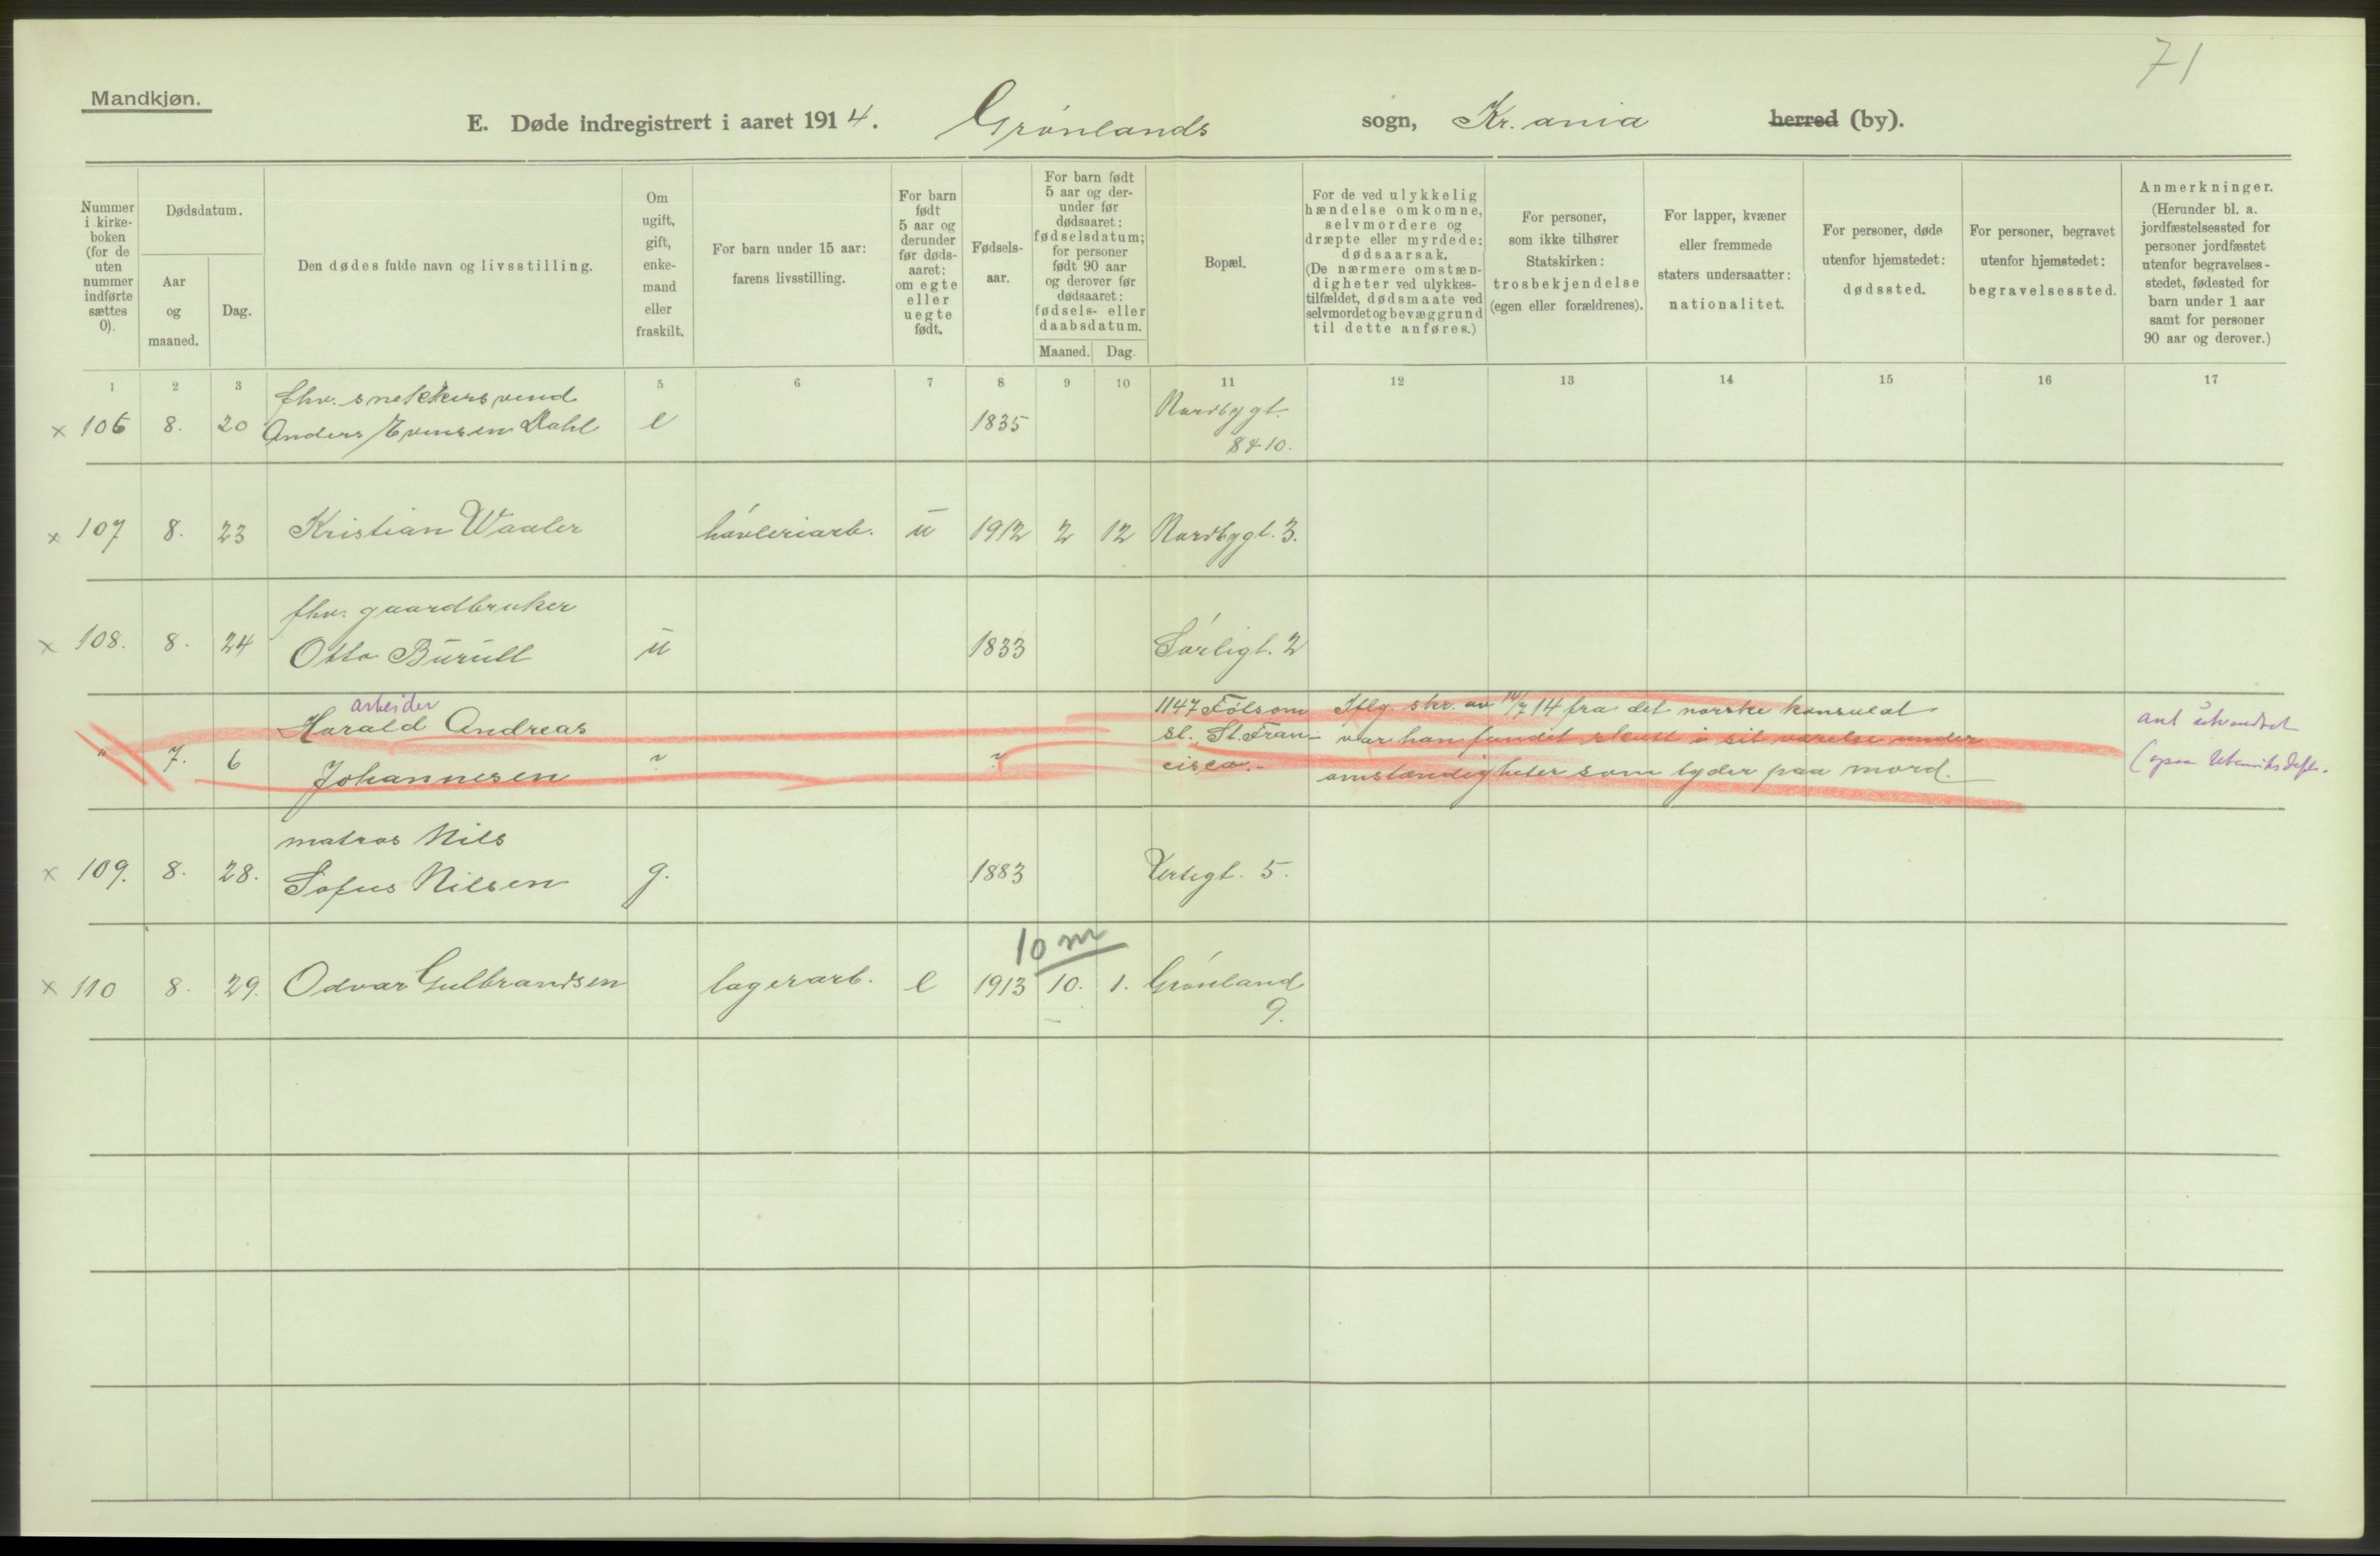 71
Mandkjøn.
E. Døde indregistrert i aaret 1914. Grønlands sogn, Kr.ania herred (by).
Nummer i kirkeboken (for de uten nummer indførte sættes 0).
Dødsdatum.
Aar og maaned.
Dag.
Den dødes fulde navn og livsstilling.
Om ugift, gift, enkemand eller fraskilt.
For barn under 15 aar: farens livsstilling.
For barn født 5 aar og derunder før dødsaaret: om egte eller uegte født.
Fødselsaar.
For barn født 5 aar og derunder før dødsaaret: fødselsdatum; for personer født 90 aar og derover før dødsaaret: fødsels- eller daabsdatum.
Maaned. Dag.
Bopæl.
For de ved ulykkelig hændelse omkomne, selvmordere og dræpte eller myrdede: dødsaarsak. (De nærmere omstændigheter ved ulykkestilfældet, dødsmaate ved selvmordet og bevæggrund til dette anføres.)
For personer, som ikke tilhører Statskirken: trosbekjendelse (egen eller forældrenes).
For lapper, kvæner eller fremmede staters undersaatter: nationalitet.
For personer, døde utenfor hjemstedet: dødssted.
For personer, begravet utenfor hjemstedet: begravelsessted.
Anmerkninger. (Herunder bl. a. jordfæstelsessted for personer jordfæstet utenfor begravelsesstedet, fødested for barn under 1 aar samt for personer 90 aar og derover.)
1 2 3 5 6 7 8 9 10 11 12 13 14 15 16 17
fhv. snekkersvend
x 106 8. 20 Anders Evensen Dahl e 1835 Nordbygt. 8 & 10.
x 107 8. 23 Kristian Waaler høvleriarb. u 1912 2 12 Nordbygt. 3.
fhv. gaardbruker
x 108. 8. 24 Otto Burull u 1833 Sørligt. 2
arbeider
Harald Andreas 1147 Folsom Iflg. skr. av 14/7 14 fra det norske konsulat
" 7. 6 Johannesen st. St. Fran- var han fundet skutt i sit værelse under
cisco.- omstændigheter som tyder paa mord.
ant utvandret
matros Nils
x 109. 8. 28. Sofus Nilsen g. 1883 Urtegt. 5.
10 m
x 110 8. 29. Odvar Gulbrandsen lagerarb. e 1913 10. 1. Grønland
9.